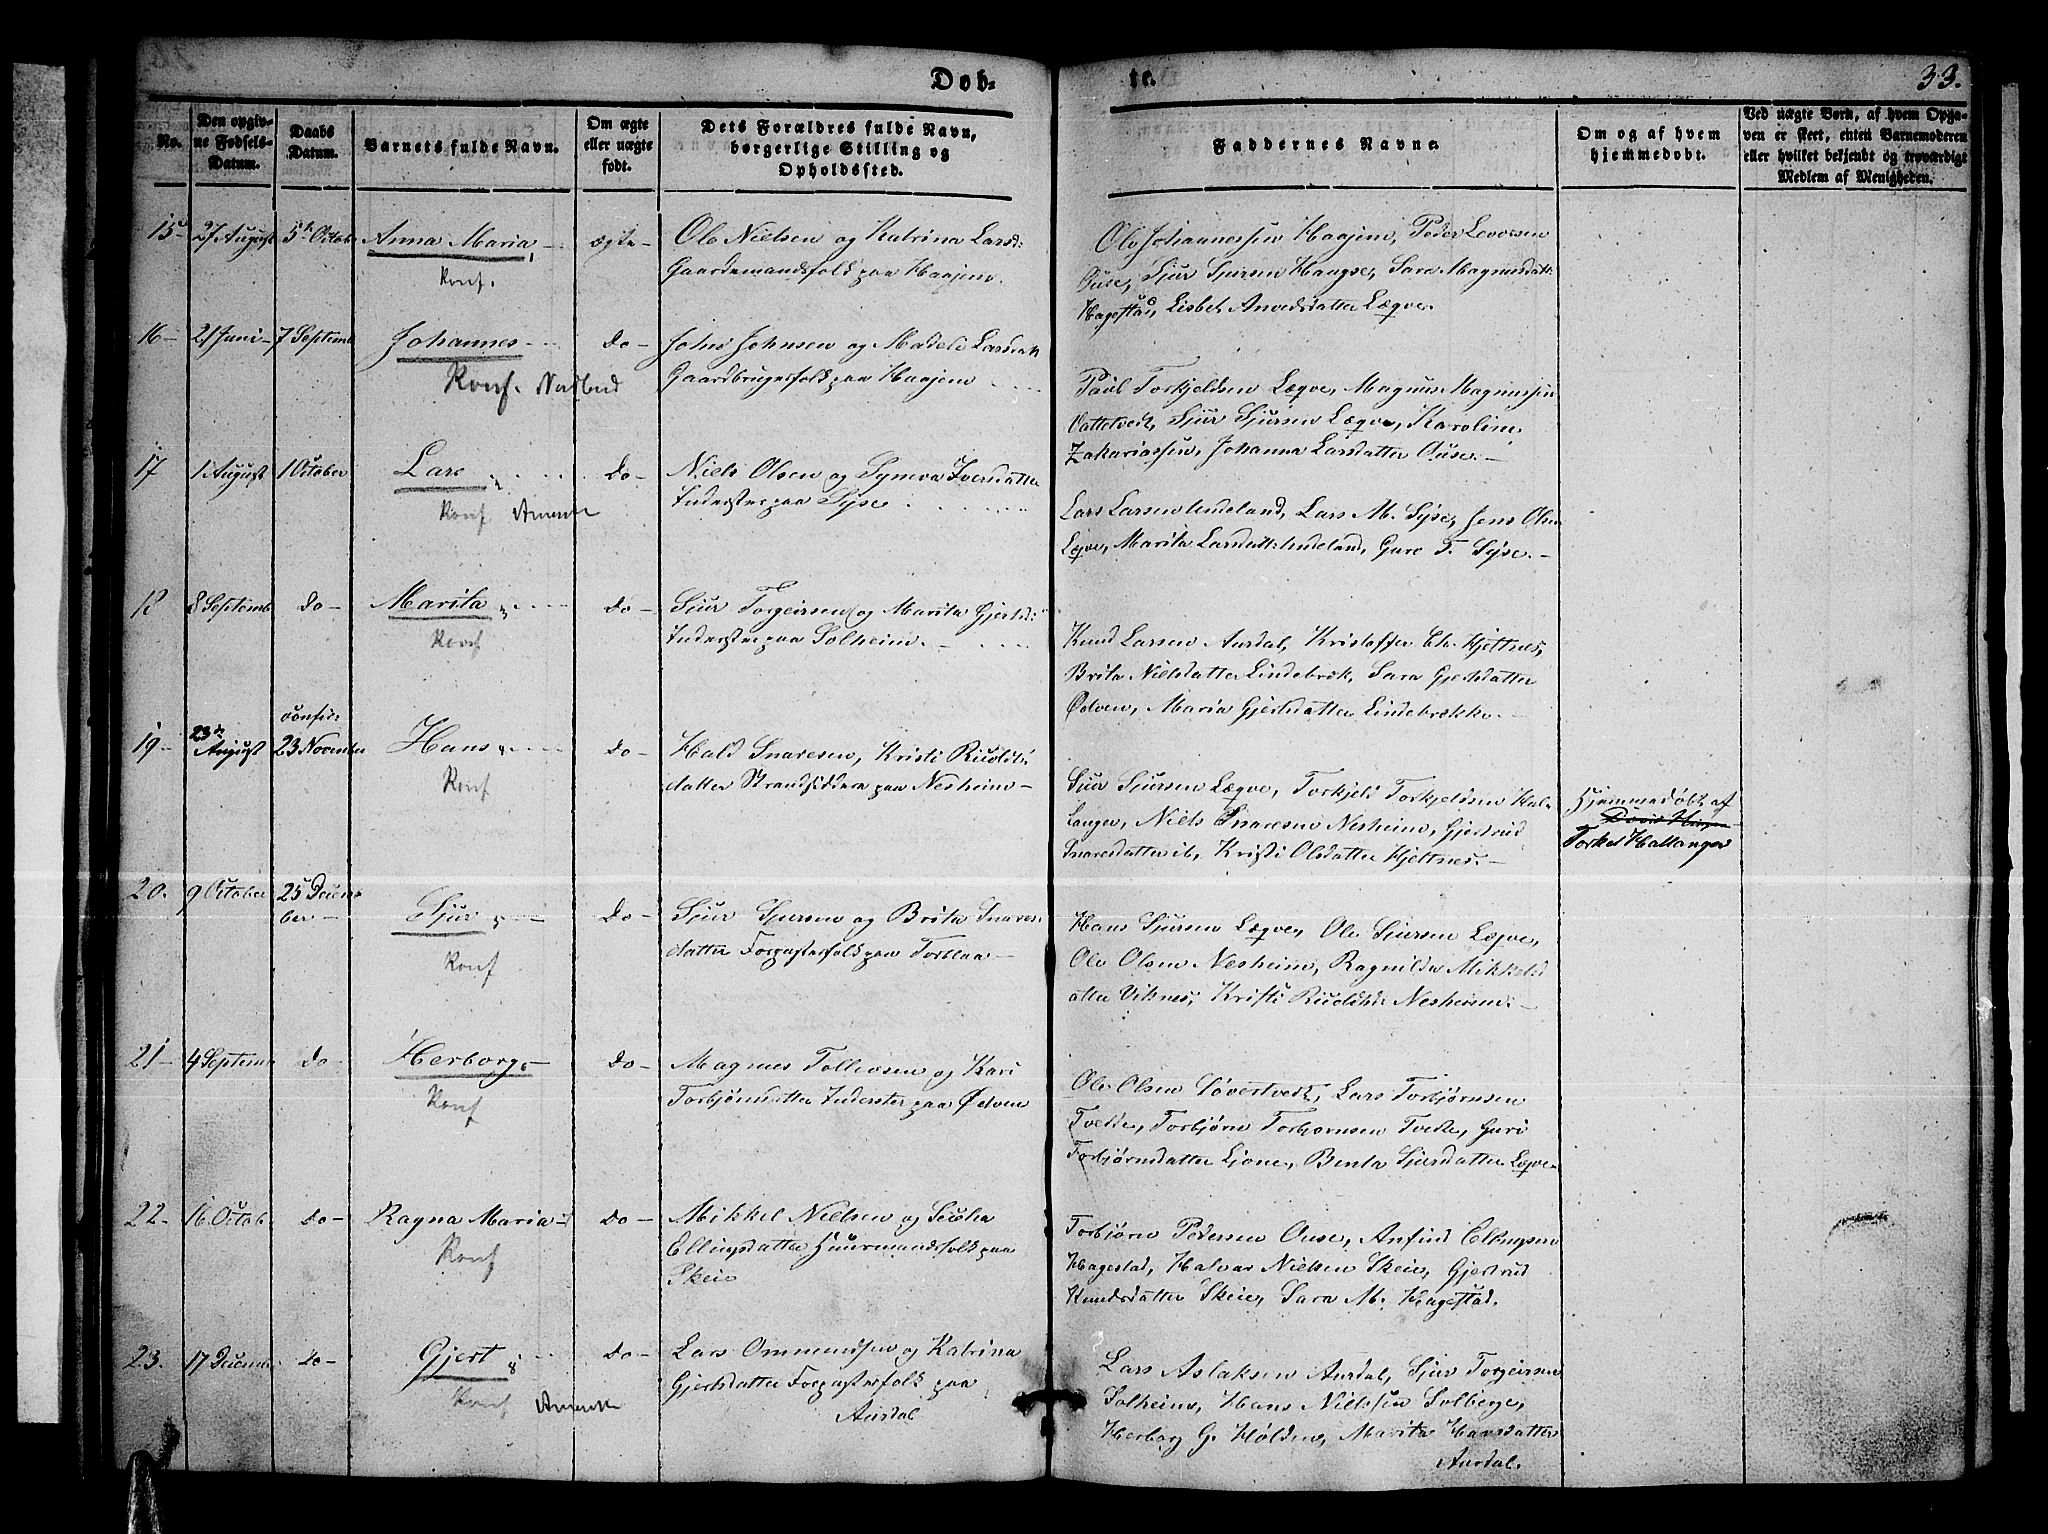 Døb-
te.
33.
No.
Den opgivne Fødsels-Datum.
Daabs Datum.
Barnets fulde Navn.
Om ægte eller uægte født.
Dets Forældres fulde Navn, borgerlige Stilling og Opholdssted.
Faddernes Navne.
Om og af hvem hjemmedøbt.
Ved uægte Børn, af hvem Opgaven er skeet, enten Barnemoderen eller hvilket bekjendt og troværdigt Medlem af Menigheden.
15 27 August 5te Octob Anna Maria 1 ægte
Konf.
Ole Nielsen og Katrina Larsd:
Gaardemandsfolk paa Haajem.
Ole Johannessen Haajem, Peder
Ouse, Sjur Sjursen Haugse, Sara Magnusdatt:
Hagestad, Lisbet Lægve.
16 21 Juni 7 Septemb Johannes Do
Konf.
John Johnsen og Madele Larsdatt
Gaardbrugerfolk paa Haajem
Paul Torkjeldsen Lægve, Magnus Magnussen
Vattetvedt, Sjur Sjursen Lægve, Karoline
Zakariassen, Johanna Larsdatter Ouse.
17 1 August 1 October Lars 2 Do
Konf
Niels Olsen og Synva Iversdatter
Inderster paa Syse
Lars Larsen Lindeland, Lars M. Syse, Jens Olsen
Lægve, Marita Larsdatt: Lindeland, Guro T. Syse.
18 8 Septemb Do Marita 3 Do
Konf
Sjur Torgeirsen og Marita Gjertsd:
Inderster paa Solheim.
Knud Larsen Aurdal, Kristoffer Chr. Hjeltnes,
Brita Nielsdatter Lindebrek, Sara Gjertsdatter
Ødven, Maria Gjertsdatter Lindebrække.
19 23de August confir: 23 November Hans 4 Do
Konf
Hald Snaresen, Kristi
datter Strandsiddere paa Nesheim
Sjur Sjursen Lægve, Torkjeld Torkjeldsen Hal-
langer, Niels Snaresen Nesheim, Gjertrud
Snaresdatter ib, Kristi Olsdatter Hjeltnes.
Hjemmedøbt af
Torkel Hallanger
20. 9 October 25 Decem-
ber Sjur 5 Do
Konf
Sjur Sjursen og Brita Snares-
datter Forpagterfolk paa Torblaa
Hans Sjursen Lægve, Ole Sjursen Lægve,
Ole Olsen Nesheim, Ragnilda Mikkelsd
atter Viknes, Kristi Nesheim.
21 4 Septemb Do Herborg 6 Do
Konf
Magnes Tollevsen og Kari
Torbjønsdatter Inderster paa Ødven
Ole Olsen Løvestvedt, Lars Torbjørnsen
Tvedte, Torbjørn Torbjørnsen Tvedte, Guri
Torbjørnsdatter Ljone, Benta Sjursdatter Lægve
22. 16 Octob Do Ragna Maria 7 Do
Konf
Mikkel Nielsen og
Ellingsdatter Huusmandsfolk paa
Skeie
Torbjørn Pedersen Ouse, Anfind Ellingsen
Hagestad, Halvar Nielsen Skeie, Gjertrud
Knudsdatter Skeie, Sara M. Hagestad.
23. 17 Decemb Do Gjert 8 Do
Konf
Lars Ommundsen og Katrina
Gjertsdatter Forpagterfolk paa
Aurdal
Lars Aslaksen Aurdal, Sjur Torgeirsen
Solheim, Hans Nielssen Solberge,
Herborg G. Hølden, Marita Hansdatter
Aurdal.